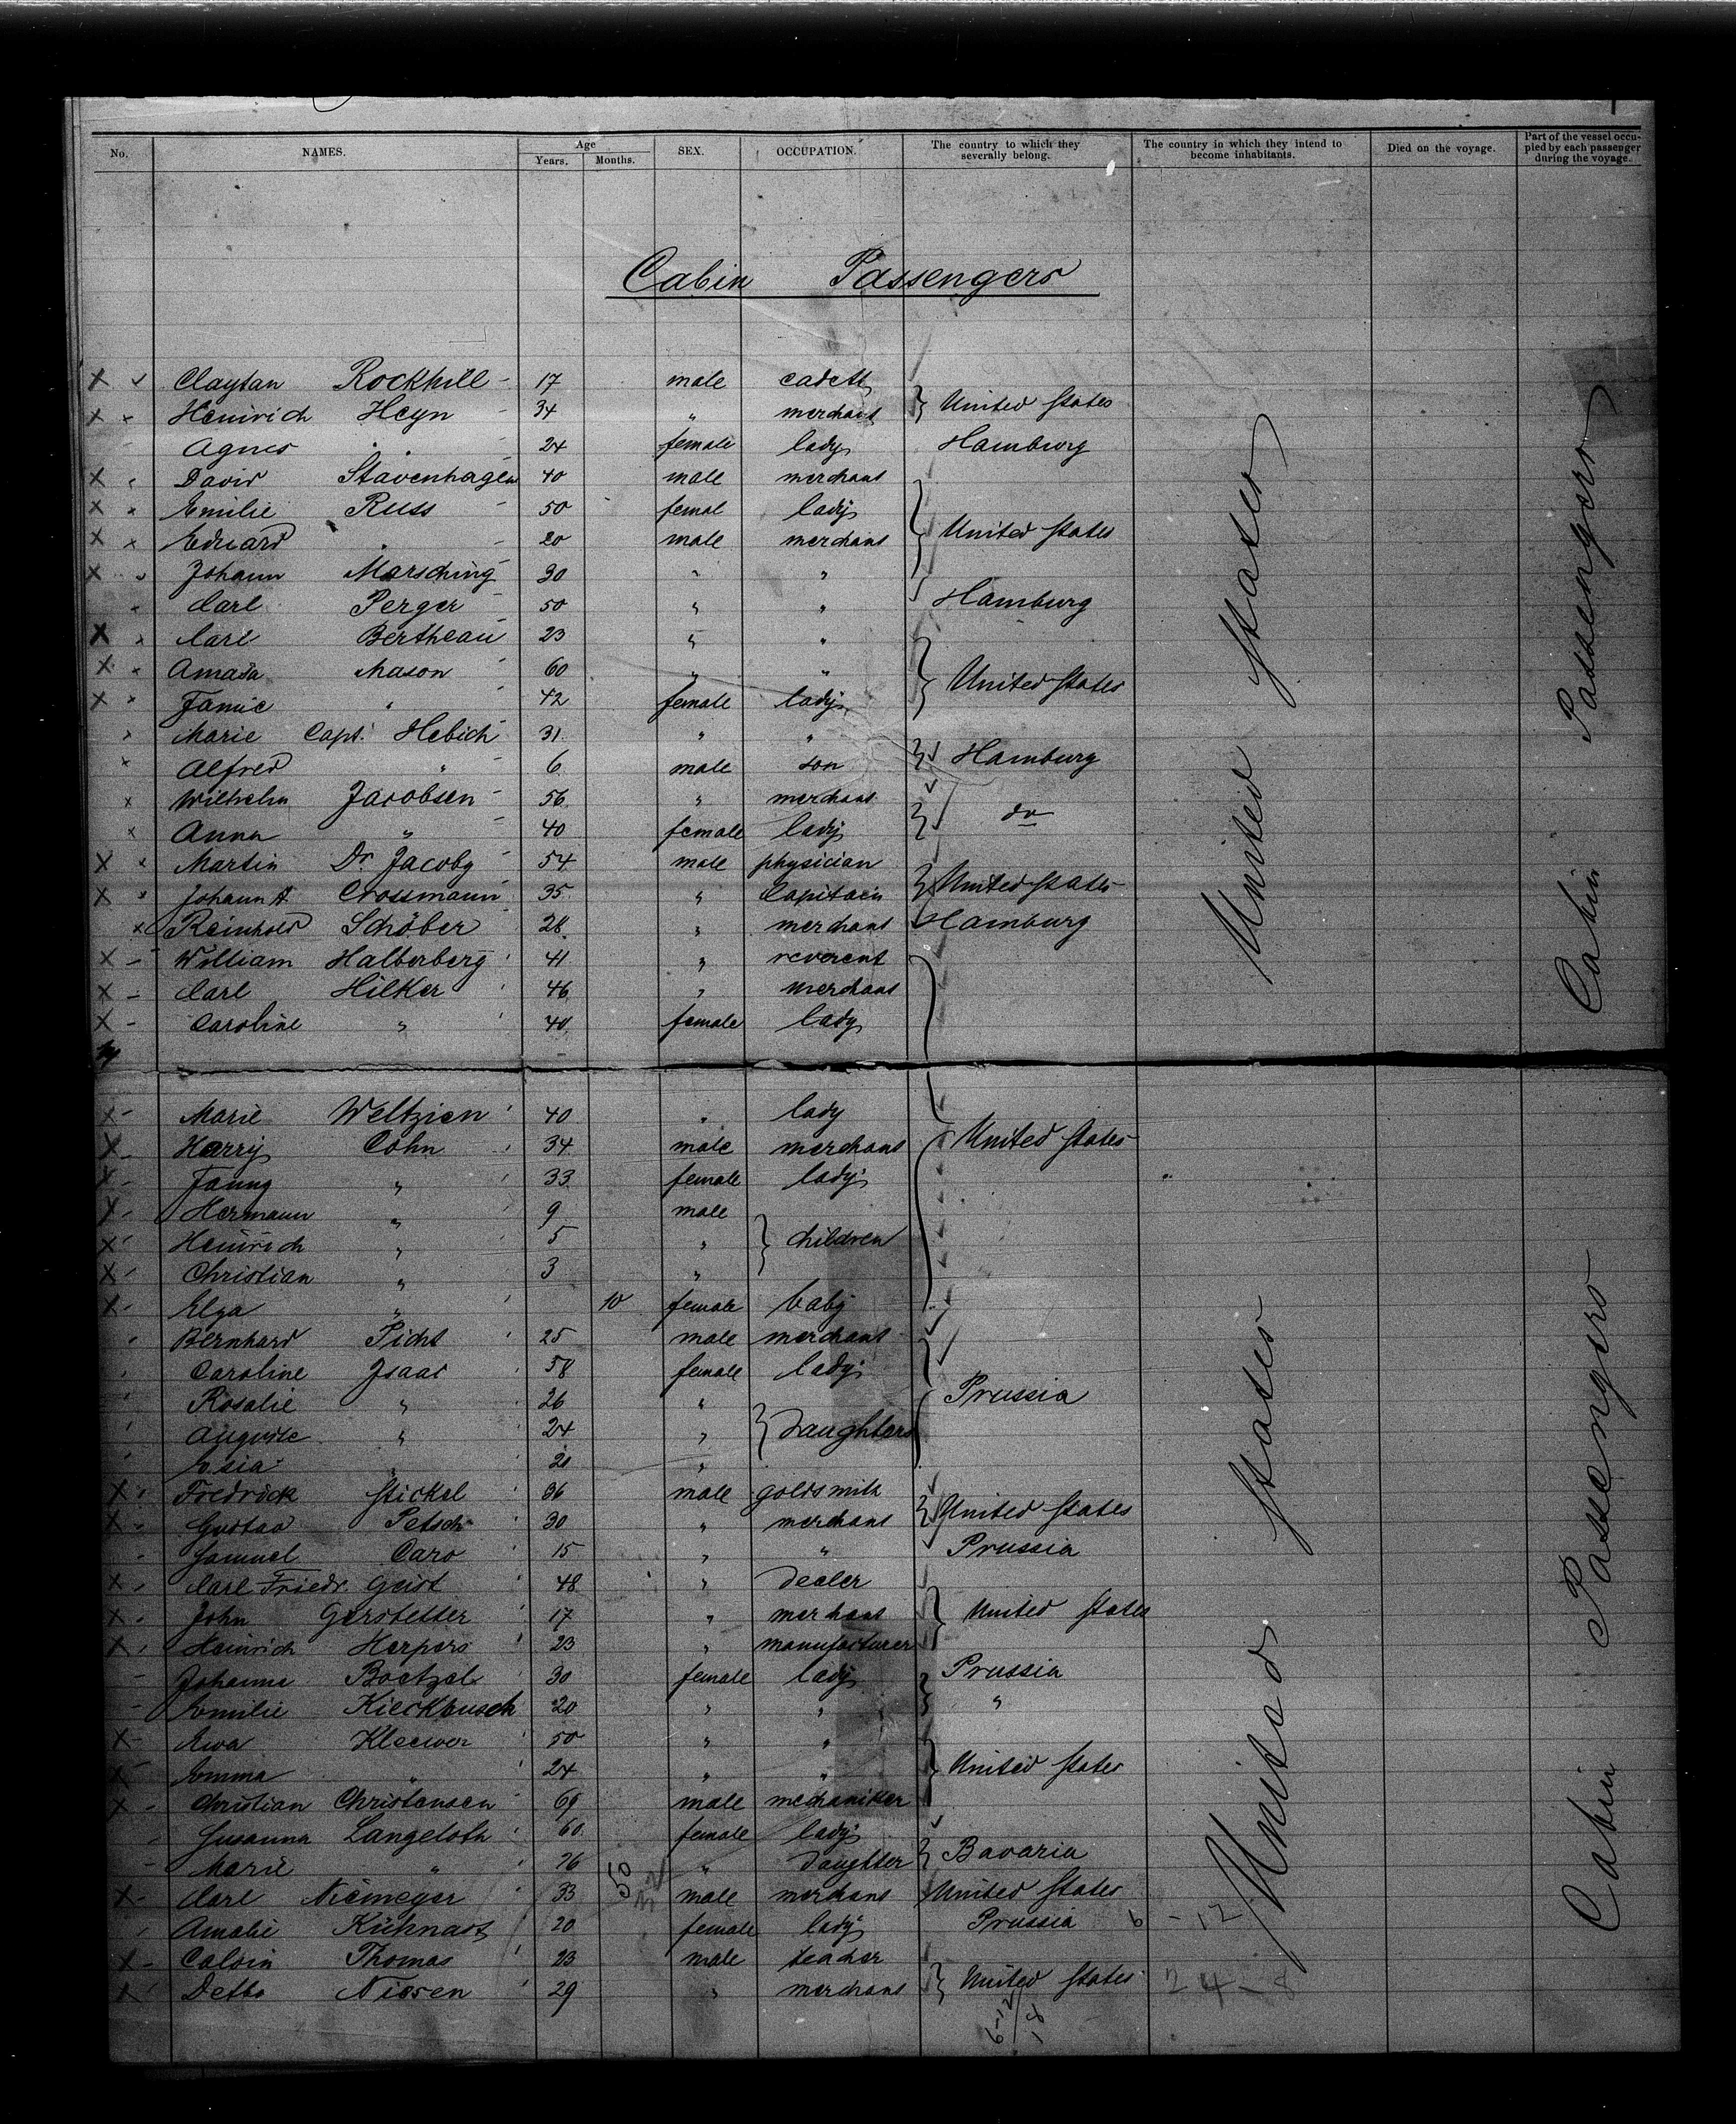 No. NAMES. Age Years. Months. SEX. OCCUPATION. The country to which they severally belong. The country in which they intend to become inhabitants. Died on the voyage. Part of the vessel occupied by each passenger during the voyage.
Cabin Passengers
Claytan Rockhill 17 male cadett
} United States
Heinrich Heyn 34 " merchant
Agnes " 24 female lady Hamburg
David Stavenhagen 40 male merchant
Emilie Russ 50 femal lady
} United States
Eduard " 20 male merchant
Johann Marsching 30 " "
Carl Perger 50 " " Hamburg
Carl Bertheau 23 " "
Amasa Mason 60 " "
} United States
Fanie " 42 female lady
Marie Capt. Hebich 31 " "
} Hamburg
Alfred " 6 male son
Wilhelm Jacobsen 56 " merchant
} do
Anna " 40 female lady
Martin Dr. Jacoby 54 male physician
} United States
Johann A Crossmann 35 " Capitain
Reinhold Schöber 28 " merchant Hamburg
William Halberberg 41 " reverent
Carl Hilker 46 " merchant
Caroline " 40 female lady
Marie Weltzien 40 " lady
} United States
Harry Cohn 34 male merchant
Fanny " 33 female lady
Hermann " 9 male
} children
Heinrich " 5 "
Christian " 3 "
Elga " 10 female baby
Bernhard Picht 25 male merchant
Caroline Isaac 58 female lady
Prussia
Rosalie " 26 "
} Daughters
Auguste " 24 "
" 21 "
Fredrick Stickel 36 male goldsmith
} United States
Gustav Petsch 30 " merchant
Samuel Caro 15 " " Prussia
Carl Friedr. Geist 48 " dealer
John Gerstetter 17 " merchant } United States
Heinrich Herpers 23 " manufacturer
Johanne Boetzel 30 female lady Prussia
Emilie Kieckbusch 20 " " "
Ewa Kleewer 50 " "
} United States
Emma " 24 " "
Christian Christensen 69 male mechaniker
Susanna Langeloth 60 female lady
} Bavaria
Marie " 26 " Daughter
Carl Niemeyer 33 male merchant United States
Amalie Kühnast 20 female lady Prussia 6 - 12
Calvin Thomas 23 male teacher
} United States
Detlo Nissen 29 " merchant
24-8
50
32
6-12
18
United States
United States
Cabin Passengers
Cabin Passengers